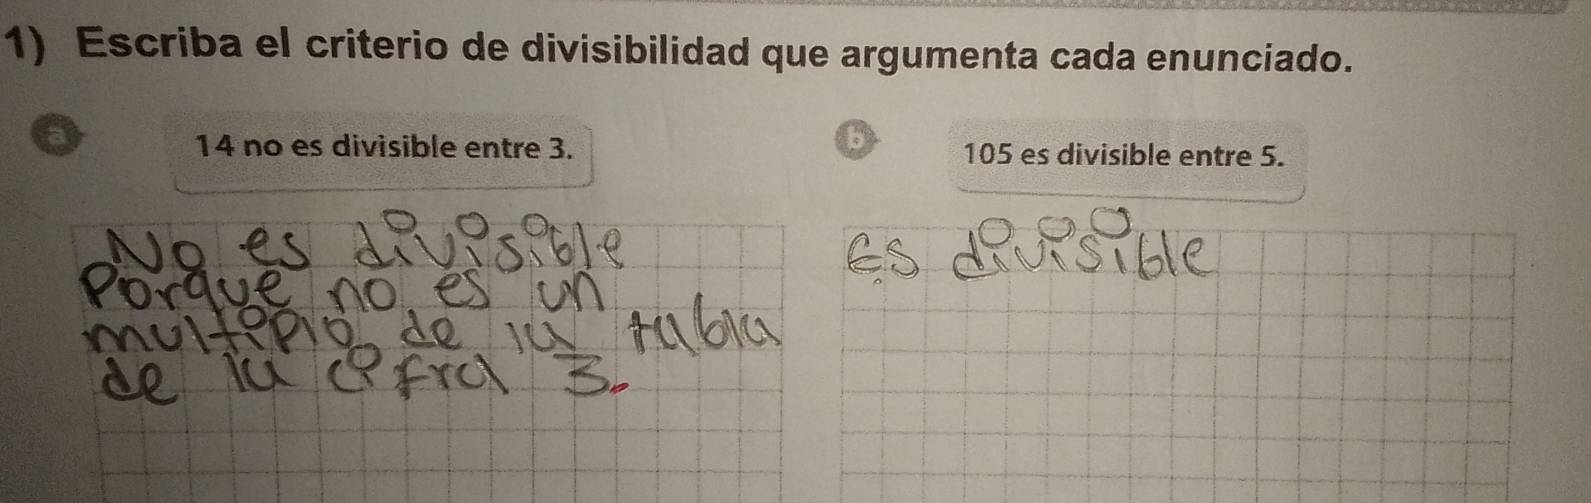 1) Escriba el criterio de divisibilidad que argumenta cada enunciado.
a
14 no es divisible entre 3.
No es divisible
Porque no es un
multiplo de la tabla
de la cifra 3.
b
105 es divisible entre 5.
Es divisible